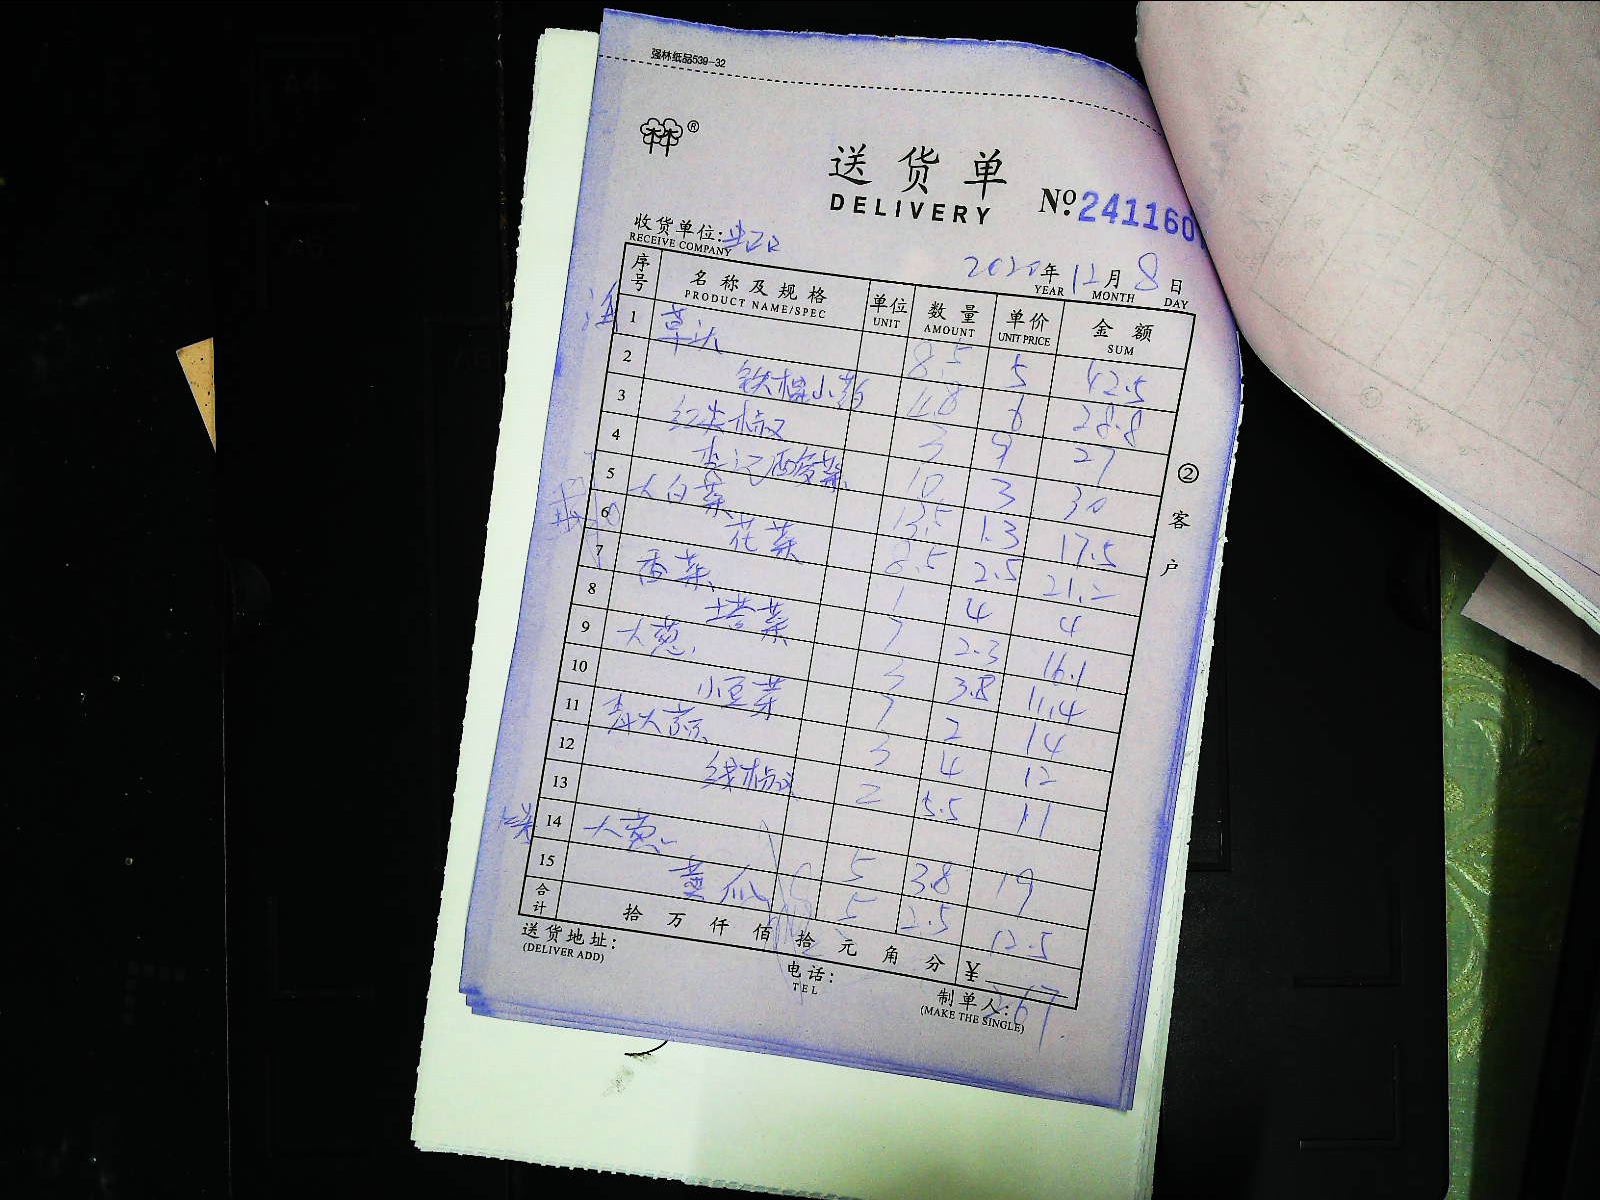 强林纸品539-32
送货单
DELIVERY
No. 241160
收货单位:
RECEIVE COMPANY
2020年12月8日
YEAR MONTH DAY
序号 名称及规格 单位 数量 单价 金额
PRODUCT NAME/SPEC UNIT AMOUNT UNIT PRICE SUM
1 草头 8.5 5 42.5
2 铁棍小药 4.8 6 28.8
3 红尖椒 3 9 27
4 李记酸菜 10 3 30
5 大白菜 13.5 1.3 17.5
6 花菜 8.5 2.5 21.2
7 香菜 1 4 4
8 塔菜 7 2.3 16.1
9 大葱 3 3.8 11.4
10 小豆芽 7 2 14
11 3 4 12
12 线椒 2 5.5 11
13
14 大葱 5 3.8 19
15 黄瓜 5 2.5 12.5
合计 拾万仟佰拾元角分 ¥ 267
送货地址:
(DELIVER ADD)
电话:
TEL
制单人:
(MAKE THE SINGLE)
②客户